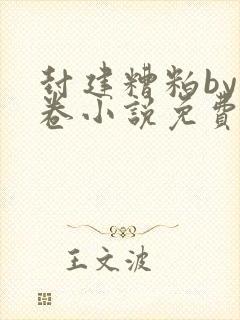 封建糟粕by
卷小説免費
王文波